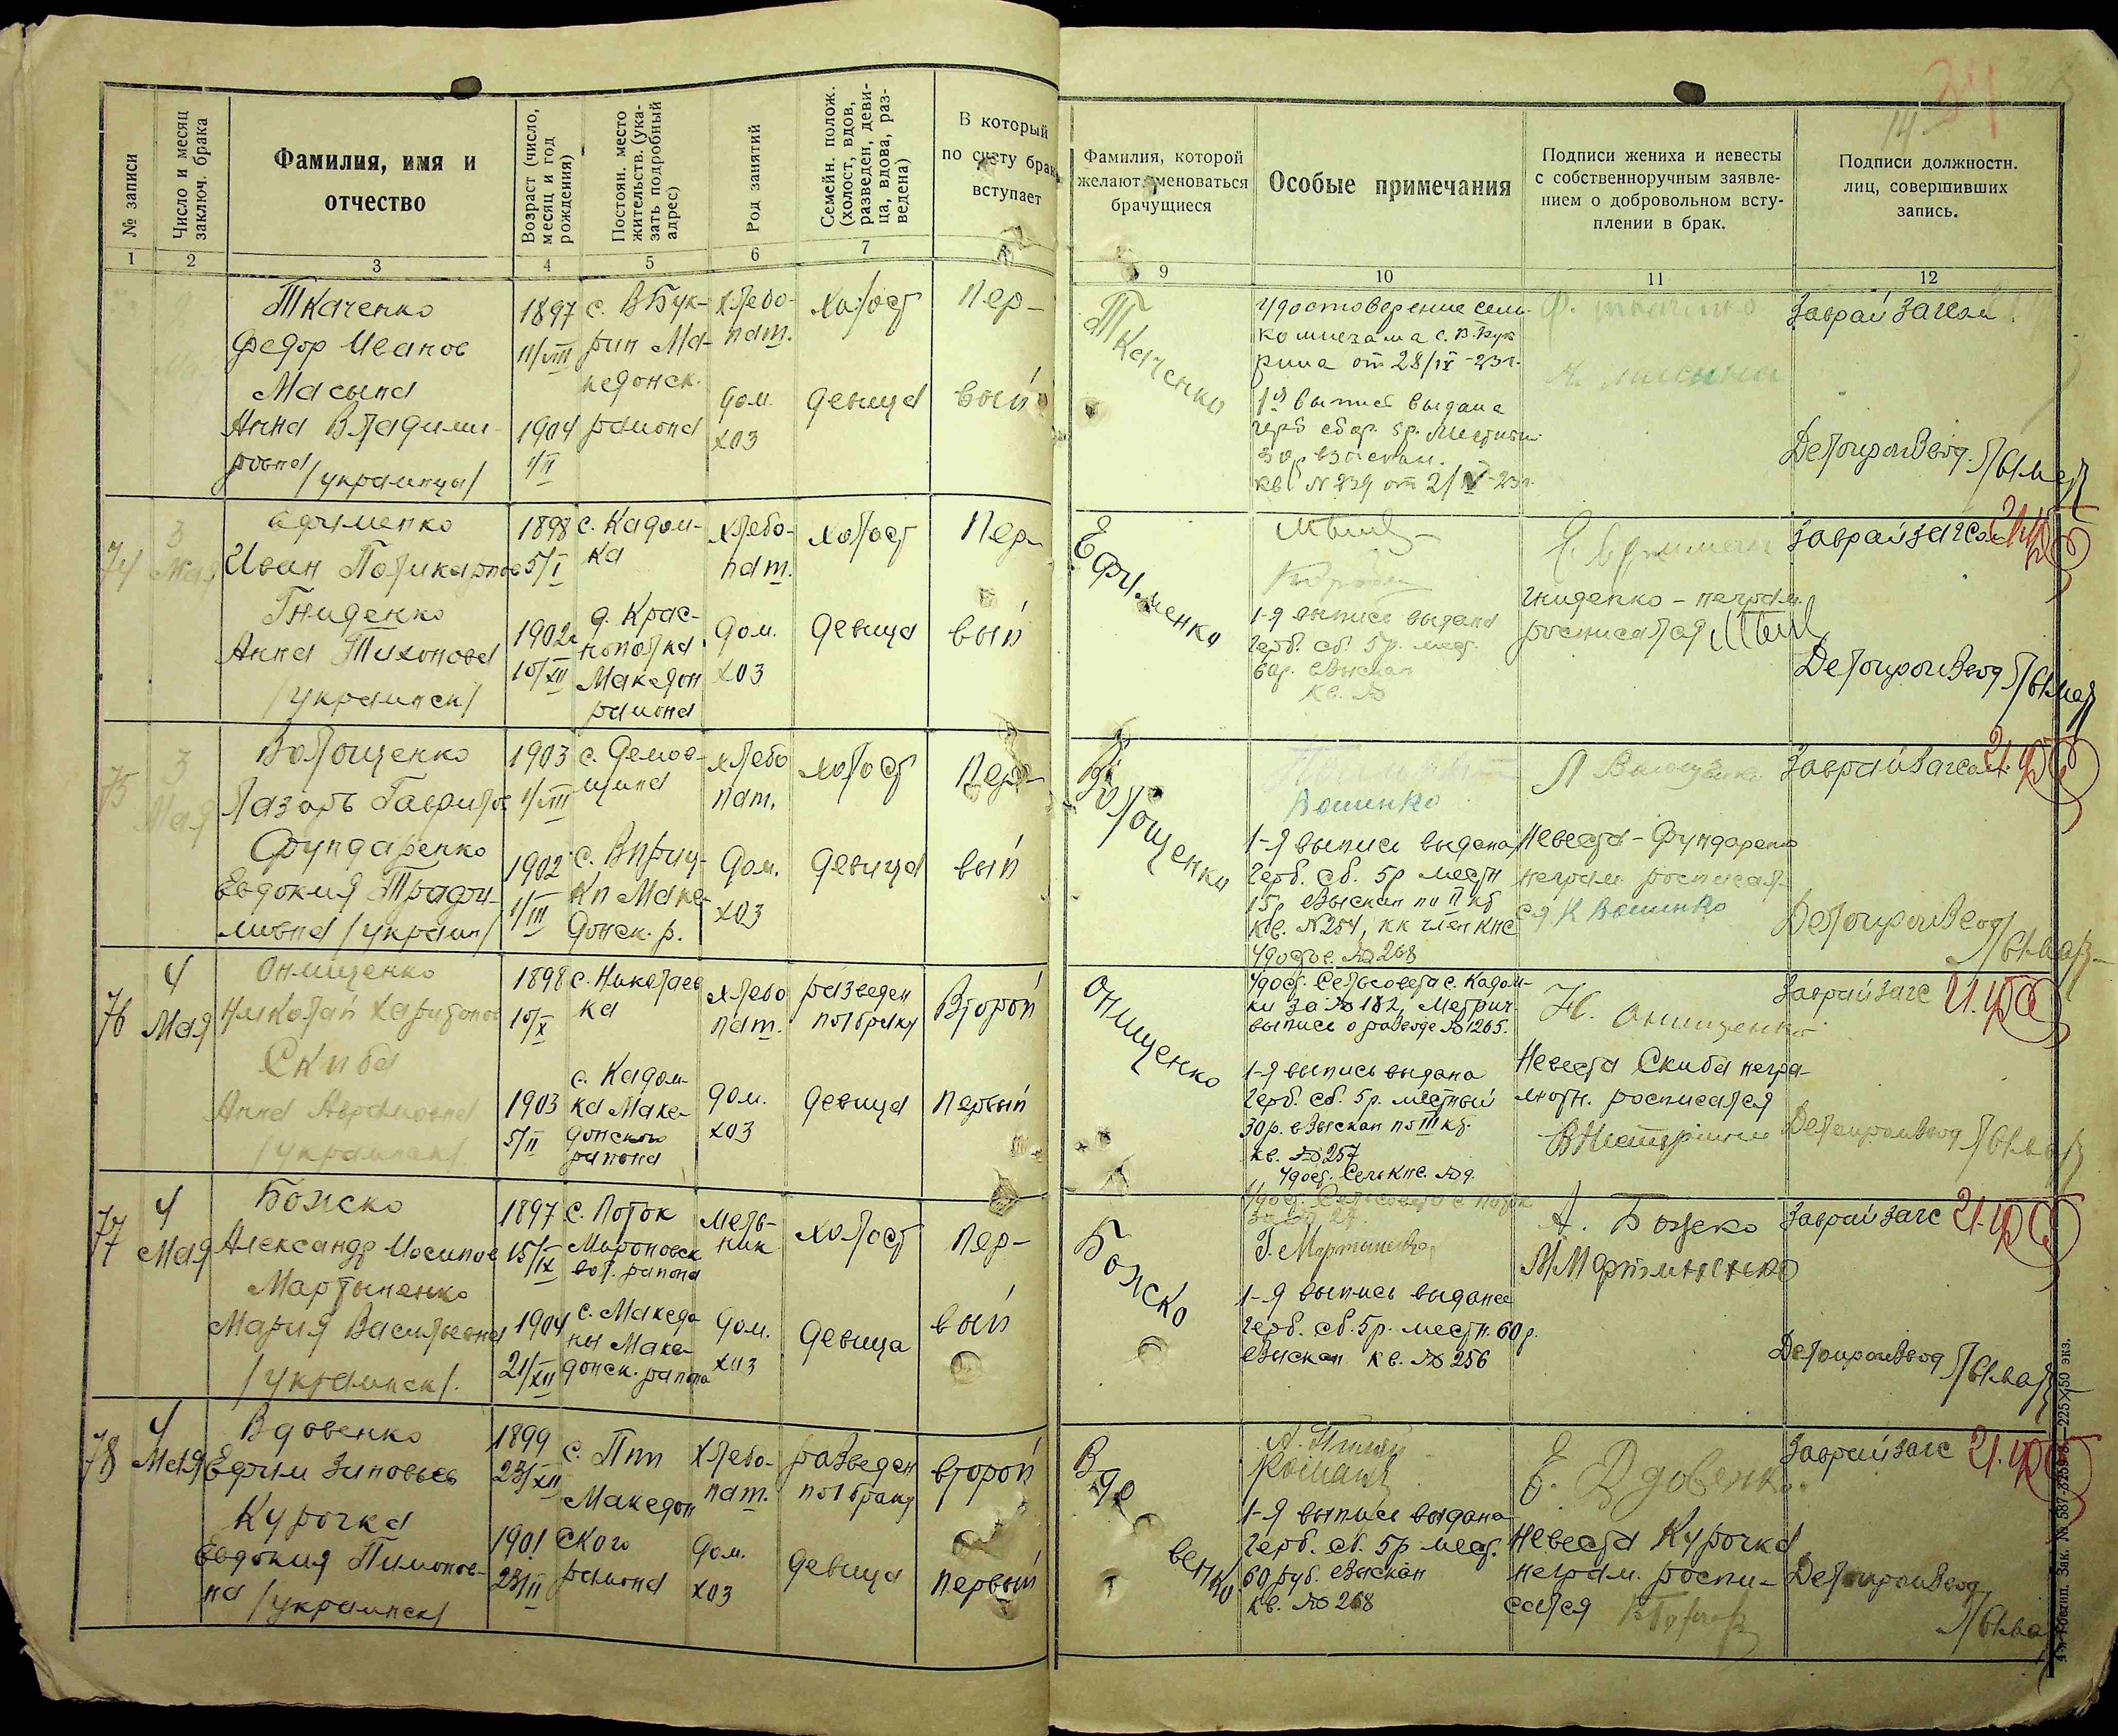 № записи
Число и месяц заключ. брака
Фамилия, имя и отчество
Возраст (число, месяц и год рождения)
Постоян. место жительств. (указать подробный адрес)
Род занятий
Семейн. полож. (холост, вдов, разведен, девица, вдова, разведена)
В который по счету брак вступает
Фамилия, которой желают именоваться брачущиеся
Особые примечания
Подписи жениха и невесты с собственноручным заявлением о добровольном вступлении в брак.
Подписи должностн. лиц, совершивших запись.
34
14
1 2 3 4 5 6 7
9 10 11 12
Ткаченко
Федор Иванов
Масына
Анна Владими-
ровна /украинцы/
1897
11/VIII
1904
1/II
с. ВБук-
рин Ма-
кедонск.
района
хлебо-
пат.
дом.
хоз
холост
девица
Пер-
вый
Ткаченко
Удостоверение сель-
комнезама с. В.Бук
рина от 28/IV-23г.
1я выпись выдана
герб сбор. 5р. Местный
30р взыскан.
кв. N 239 от 2/V-23г.
Ф. Ткаченко
Заврайзагсом
Делопроизвод.
74
3
Мая
Ефименко
Иван Поликарпов
Гниденко
Анна Тихоновна
/украинск/
1898
5/I
1902г
10/XII
с. Кадом-
ка
д. Крас-
нополка
Македон
района
хлебо-
пат.
дом.
хоз
холост
девица
Пер-
вый
Ефименко
1-я выпись выдана
герб. сб. 5р. мест.
60р. взыскан
кв. №
Гниденко – неграм.
росписалая
Заврайзагсом
Делопроизвод
75
3
Мая
Волощенко
Лазарь Гаврилов
Фундаренко
Евдокия Трофи-
мовна /украин/
1903
1/VIII
1902
1/III
с. Демов-
щина
с. Вприц-
ки Маке-
донск. р.
хлебо
пат.
дом.
хоз
холост
девица
Пер-
вый
Волощенко
1-я выпись выдана
герб. сб. 5р местн
15р взыскан по II кб
кв. N254, кк член КНС
удостов. №268
Невеста – Фундаренко
неграм. росписал-
ся К
Заврайзагсом
Делопроизвод
76
4
Мая
Онищенко
Николай Харитонов
Скиба
Анна Абрамовна
/украинск/
1898
10/X
1903
5/II
с. Николаев
ка
с. Кадом-
ка Маке-
донского
района
хлебо
пат.
дом.
хоз
разведен
по 1 браку
девица
Второй
Первый
Онищенко
Удост. Сельсовета с. Кадом-
ки за №182, Метрич.
выпись о разводе №1265.
1-я выпись выдана
герб. сб. 5р. местный
30р. взыскан по III кб.
кв. №257
Удост. Сель КНС. №9.
Н. Онищенко
Невеста Скиба негра-
мотн. росписался
Заврайзагс
Делопроизвод
77
4
Мая
Божско
Александр Иосипов
Мартыненко
Мария Васильевна
/украинск/.
1897
15/IX
1904
21/XII
с. Поток
Мироновск
вол. района
с. Македо
ны Маке-
донск. района
мель-
ник
дом.
хоз
холост
девица
Пер-
вый
Божско
Удост. Сельсовета с Поток
за № 27.
Г. Мартиненко
1-я выпись выдана
герб. сб. 5р. местн. 60р.
взыскан кв. №256
А. Божско
М Мартиненко
Заврайзагс
Делопроизвод
78
4
Мая
Вдовенко
Ефим Зиновьев
Курочка
Евдокия Пимонов-
на /украинск/
1899
23/XII
1901
23/II
с. Пии
Македон
ского
района
хлебо-
пат.
дом.
хоз
разведен
по 1 браку
девица
второй
первый
Вдовенко
1-я выпись выдана
герб. сб. 5р мест.
60 руб. взыскан
кв. №268
Е. Вдовенко
Невеста Курочка
неграм. роспи-
сался
Заврайзагс
Делопроизвод